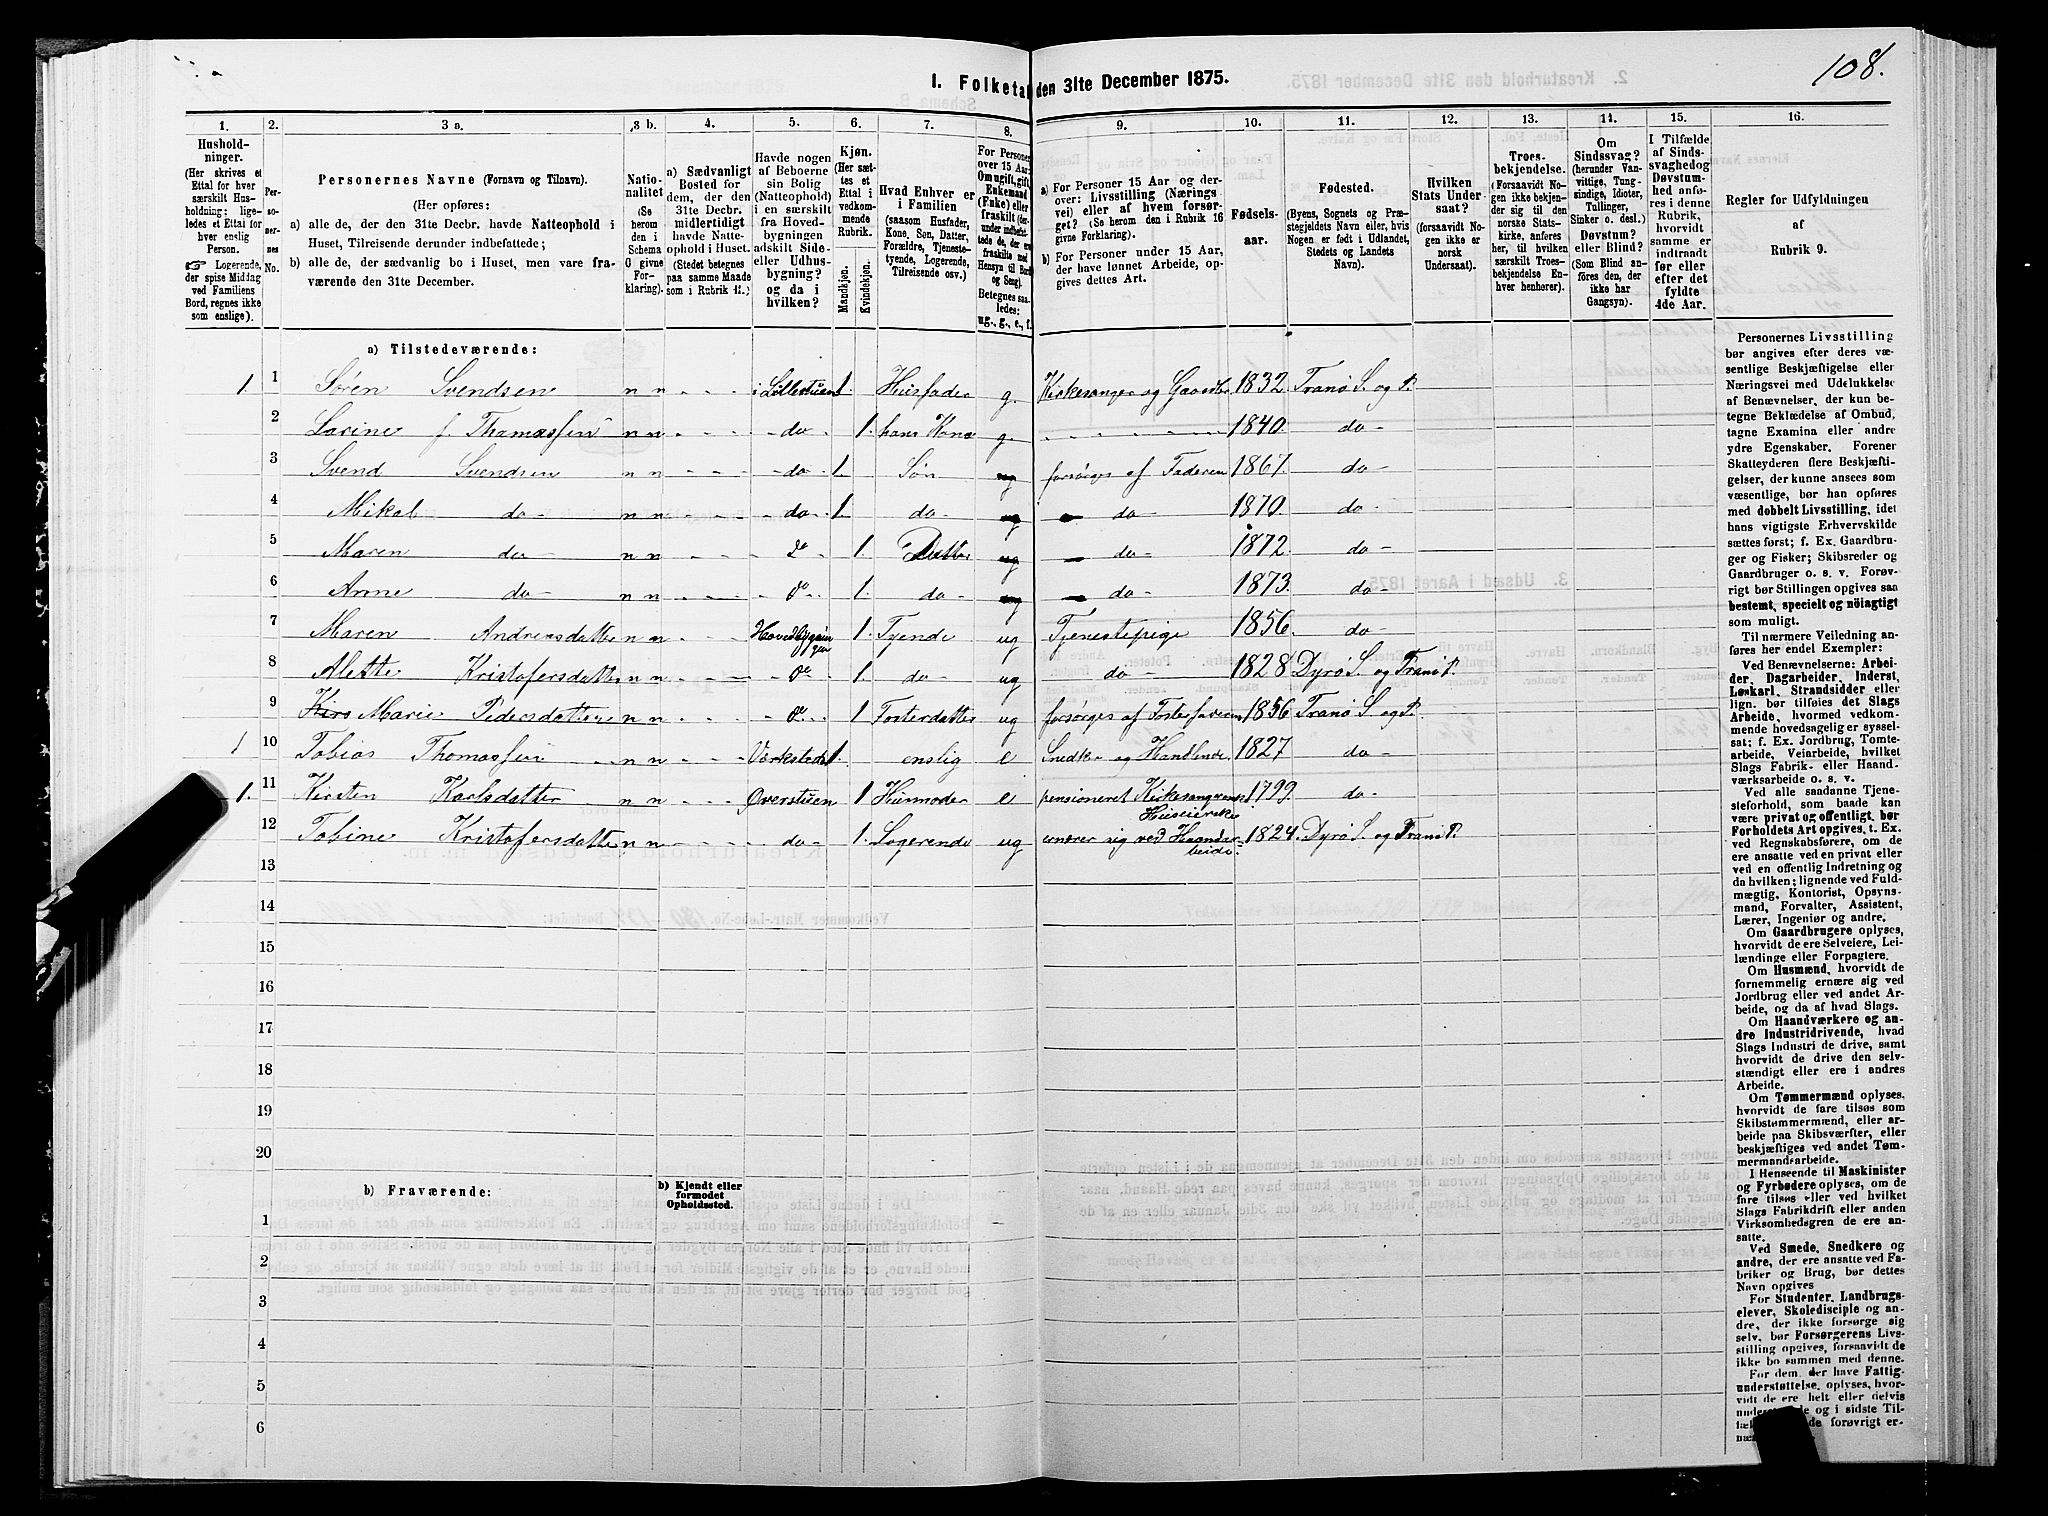 108.
I. Folketal den 31te December 1875.
1. 2. 3 a. 3 b. 4. 5. 6. 7. 8. 9. 10. 11. 12. 13. 14. 15. 16.
Hushold-
ninger.
(Her skrives et
Ettal for hver
særskilt Hus-
holdning; lige-
ledes et Ettal
for hver
enslig
Person.
☞ Logerende,
der spise Middag
ved Familiens
Bord, regnes ikke
som enslige).
Per-
so-
ner-
nes
No.
Personernes Navne (Fornavn og Tilnavn).
(Her opføres:
a) alle de, der den 31te Decbr. havde Natteophold i
Huset, Tilreisende derunder indbefattede;
b) alle de, der sædvanlig bo i Huset, men vare fra-
værende den 31te December.
Natio-
nalitet
(Se
herom
den i
Schema
O givne
For-
klaring).
a) Sædvanligt
Bosted for
dem, der den
31te Decbr.
midlertidigt
havde Natte-
ophold i Huset.
(Stedet betegnes
paa samme Maade
som i Rubrik 11.)
Havde nogen
af Beboerne
sin Bolig
(Natteophold)
i en særskilt
fra Hoved-
bygningen
adskilt Side-
eller Udhus-
bygning?
og da i
hvilken?
Kjøn.
(Her sæt-
tes et
Ettal i
vedkom-
mende
Rubrik.
Mandkjøn.
Kvindekjøn.
Hvad Enhver er
i Familien
(saasom Husfader,
Kone, Søn, Datter,
Forældre, Tjeneste-
tyende, Logerende,
Tilreisende osv.)
For Personer
over 15 Aar:
Om ugift, gift,
Enkemand
(Enke) eller
fraskilt
Betegnes saa-
ledes:
ug., g., e., f.
a) For Personer 15 Aar og der-
over: Livsstilling (Nærings-
vei) eller af hvem forsør-
get? (Se herom den i Rubrik 16
givne Forklaring).
b) For Personer under 15 Aar,
der have lønnet Arbeide, op-
gives dettes Art.
Fødsels-
aar.
Fødested.
(Byens, Sognets og Præ-
stegjeldets Navn eller, hvis
Nogen er født i Udlandet,
Stedets og Landets
Navn).
Hvilken
Stats Under-
saat?
(forsaavidt No-
gen ikke er
norsk
Undersaat).
Troes-
bekjendelse.
(Forsaavidt No-
gen ikke bekjen-
der sig til den
norske Stats-
kirke, anføres
her, til hvilken
særskilt Troes-
bekjendelse En-
hver henhører).
Om
Sindssvag?
(herunder Van-
vittige, Tung-
sindige, Idioter,
Tullinger,
Sinker o. desl.)
Døvstum?
eller Blind?
(Som Blind an-
føres den, der
ikke har
Gangsyn).
I Tilfælde
af Sinds-
svaghed og
Døvstum-
hed anfø-
res i denne
Rubrik,
hvorvidt
samme er
indtraadt
før eller
efter det
fyldte
4de Aar.
Regler for Udfyldningen
af
Rubrik 9.
a) Tilstedeværende:
1 1 Søren Svendsen n n i Lillestuen 1. Husfader g. Kirkesanger og Gaardbr 1832. Tranø S. og P.
2 Lavine f. Thomassen n n do 1. hans Kone g. 1840. do
3 Svend Svendsen n n do 1. Søn ug forsørges af Faderen 1867. do
4 Mikal do n n do 1. do ug do 1870. do
5 Maren do n n do 1. Datter ug do 1872. do
6 Anne do n n do 1. do ug do 1873. do
7 Maren Andreasdatter n n Hovedbygnin
gen 1. Tyende ug Tjenestepige 1856. do
8 Alette Kristofersdatter n n do 1. do ug do 1828 Dyrø S. og Tranø P.
9 Kirs Marie Pedersdatter n n do 1 Fosterdatter ug forsørges af Fosterfaderen 1856 Tranø S. og P.
1 10 Tobias Thomassen n n Verkstedet 1. enslig e Snedker og Handlende 1827 do
1. 11 Kirsten Karlsdatter n n Øverstuen 1 Husmoder e pensioneret Kirkesangerenke 1799. do
Huseierske
12 Tobine Kristofersdatter n n do 1. Logerende ug ernærer sig ved Haandar-
beide. 1824. Dyrø S. og Tranø P.
13
14
15
16
17
18
19
20
b) Fraværende:
b) Kjendt eller
formodet
Opholdssted.
1
2
3
4
5
6
Personernes Livsstilling
bør angives efter deres væ-
sentlige Beskjæftigelse eller
Næringsvei med Udelukkelse
af Benævnelser, der kun be-
tegne Beklædelse af Ombud,
tagne Examina eller andre
ydre Egenskaber. Forener
Skatteyderen flere Beskjæfti-
gelser, der kunne ansees som
væsentlige, bør han opføres
med dobbelt Livsstilling, idet
hans vigtigste Erhvervskilde
sættes først; f. Ex. Gaardbru-
ger og Fisker; Skibsreder og
Gaardbruger o. s. v. Forøv-
rigt bør Stillingen opgives saa
bestemt, specielt og nöiagtigt
som muligt.
Til nærmere Veiledning an-
føres her endel Exempler:
Ved Benævnelserne: Arbei-
der, Dagarbeider, Inderst,
Løskarl, Strandsidder eller
lign. bør tilføies det Slags
Arbeide, hvormed vedkom-
mende hovedsagelig er syssel-
sat; f. Ex. Jordbrug, Tomte-
arbeide, Veiarbeide, hvilket
Slags Fabrik- eller Haand-
værksarbeide o. s. v.
Ved alle saadanne Tjen-
esteforhold, som baade kan
være private og offentlige, bør
Forholdets Art opgives, t. Ex.
ved Regnskabsførere, om de
ere ansatte ved en privat eller
ved en offentlig Indretning og
da hvilken; lignende ved Fuld-
mægtig, Kontorist, Opsyns-
mand, Forvalter, Assistent,
Lærer, Ingeniør og andre.
Om Gaardbrugere oplyses,
hvorvidt de ere Selveiere, Lei-
lændinge eller Forpagtere.
Om Husmænd, hvorvidt de
fornemmelig ernære sig ved
Jordbrug eller ved andet Ar-
beide, og da af hvad Slags.
Om Haandværkere og an-
dre Industridrivende, hvad
Slags Industri de drive, samt
hvorvidt de drive den selv-
stændigt eller ere i andres
Arbeide.
Om Tømmermænd oplyses,
hvorvidt de fare tilsøs som
Skibstømmermænd, eller ar-
beide paa Skibsværfter, eller
beskjæftiges ved andet Tøm-
mermandsarbeide.
I Henseende til Maskinister
og Fyrbødere oplyses, om de
fare tilsøs eller ved hvilket
Slags Fabrikdrift eller anden
Virksomhedsgren de ere an-
satte.
Ved Smede, Snedkere og
andre, der ere ansatte ved Fa-
briker og Brug, bør dettes
Navn opgives
For Studenter, Landbrugs-
elever, Skoledisciple og an-
dre, der ikke forsørge sig
selv, bør Forsørgerens Livs-
stilling opgives, forsaavidt de
ikke bo sammen med denne.
For dem, der have Fattig-
understøttelse, oplyses, hvor-
vidt de ere helt eller delvis
og i sidste Til-
forøvrigt er-